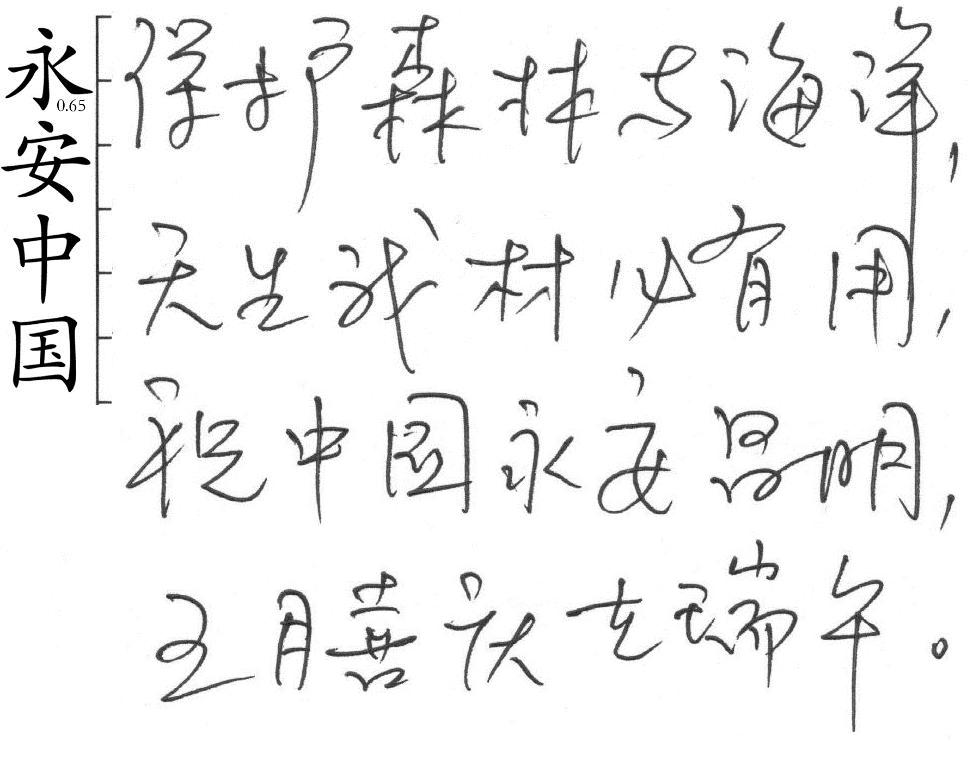 永安中国
0.65
保护森林与海洋,
天生我材必有用,
祝中国永安昌明,
五月喜庆端午。